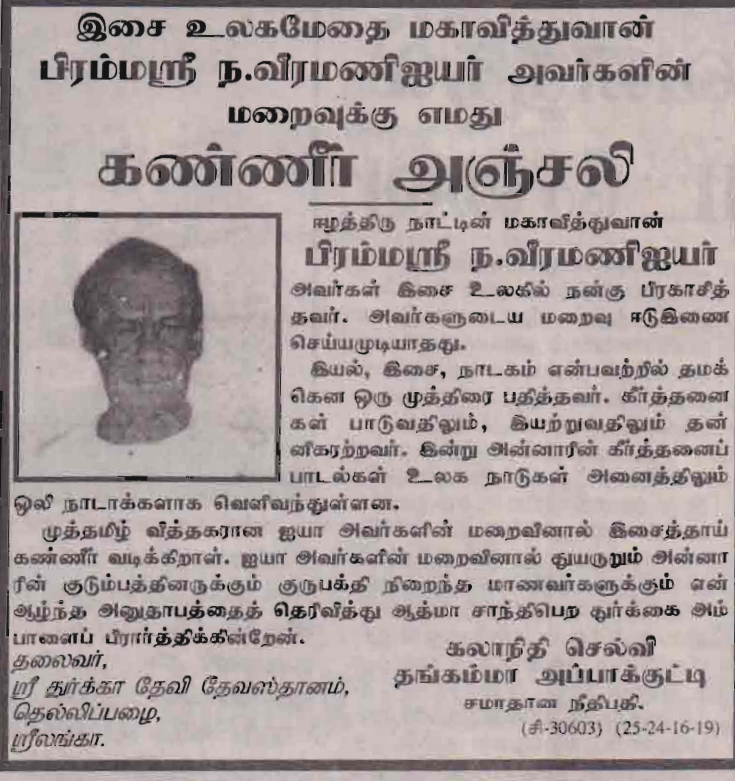 இசை உலகமேதை மகாவித்துவான்
பிரம்மஸ்ரீ ந.வீரமணிஐயர் அவர்களின்
மறைவுக்கு எமது
கண்ணீர் அஞ்சலி
ஈழத்திரு நாட்டின் மகாவித்துவான்
பிரம்மஸ்ரீ ந.வீரமணிஐயர்
அவர்கள் இசை உலகில் நன்கு பிரகாசித்
தவர். அவர்களுடைய மறைவு ஈடுஇணை
செய்யமுடியாதது.
இயல், இசை, நாடகம் என்பவற்றில் தமக்
கென ஒரு முத்திரை பதித்தவர். கீர்த்தனை
கள் பாடுவதிலும், இயற்றுவதிலும் தன்
னிகரற்றவர். இன்று அன்னாரின் கீர்த்தனைப்
பாடல்கள் உலக நாடுகள் அனைத்திலும்
ஒலி நாடாக்களாக வெளிவந்துள்ளன.
முத்தமிழ் வித்தகரான ஐயா அவர்களின் மறைவினால் இசைத்தாய்
கண்ணீர் வடிக்கிறாள். ஐயா அவர்களின் மறைவினால் துயருறும் அன்னா
ரின் குடும்பத்தினருக்கும் குருபக்தி நிறைந்த மாணவர்களுக்கும் என்
ஆழ்ந்த அனுதாபத்தைத் தெரிவித்து ஆத்மா சாந்திபெற துர்க்கை அம்
பாளைப் பிரார்த்திக்கின்றேன்.
தலைவர்,
ஸ்ரீ துர்க்கா தேவி தேவஸ்தானம்,
தெல்லிப்பழை,
ஸ்ரீலங்கா.
கலாநிதி செல்வி
தங்கம்மா அப்பாக்குட்டி
சமாதான நீதிபதி.
(சி-30603) (25-24-16-19)